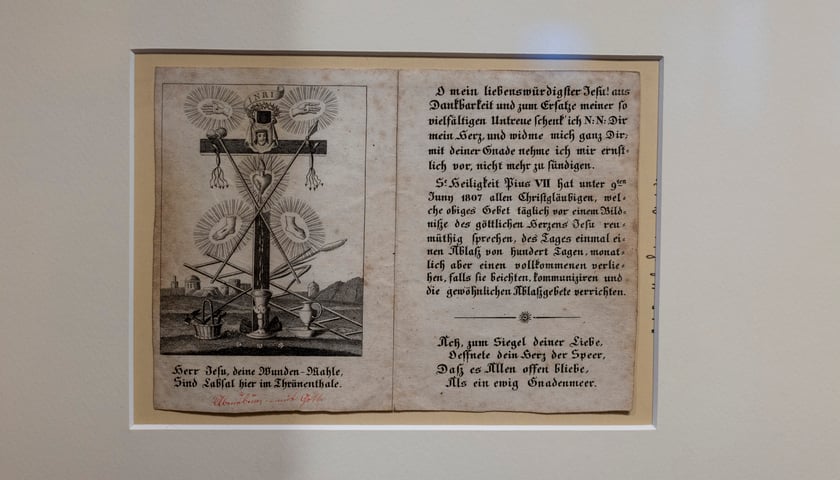 INRI
Herr Jesu, deine Wunden-Mahle,
Sind Labsal hier im Thränenthale.
O mein liebenswürdigster Jesu! aus
Dankbarkeit und zum Ersatze meiner so
vielfältigen Untreue schenk' ich N: N: Dir
mein Herz, und widme mich ganz Dir;
mit deiner Gnade nehme ich mir ernst-
lich vor, nicht mehr zu sündigen.
Sᵉ Heiligkeit Pius VII hat unter 9ten
Juny 1807 allen Christgläubigen, wel-
che obiges Gebet täglich vor einem Bild-
niße des göttlichen Herzens Jesu reu-
müthig sprechen, des Tages einmal ei-
nen Ablaß von hundert Tagen, monat-
lich aber einen vollkommenen verlie-
hen, falls sie beichten, kommuniziren und
die gewöhnlichen Ablaßgebete verrichten.
Ach, zum Siegel deiner Liebe,
Oeffnete dein Herz der Speer,
Daß es Allen offen bliebe,
Als ein ewig Gnadenmeer.